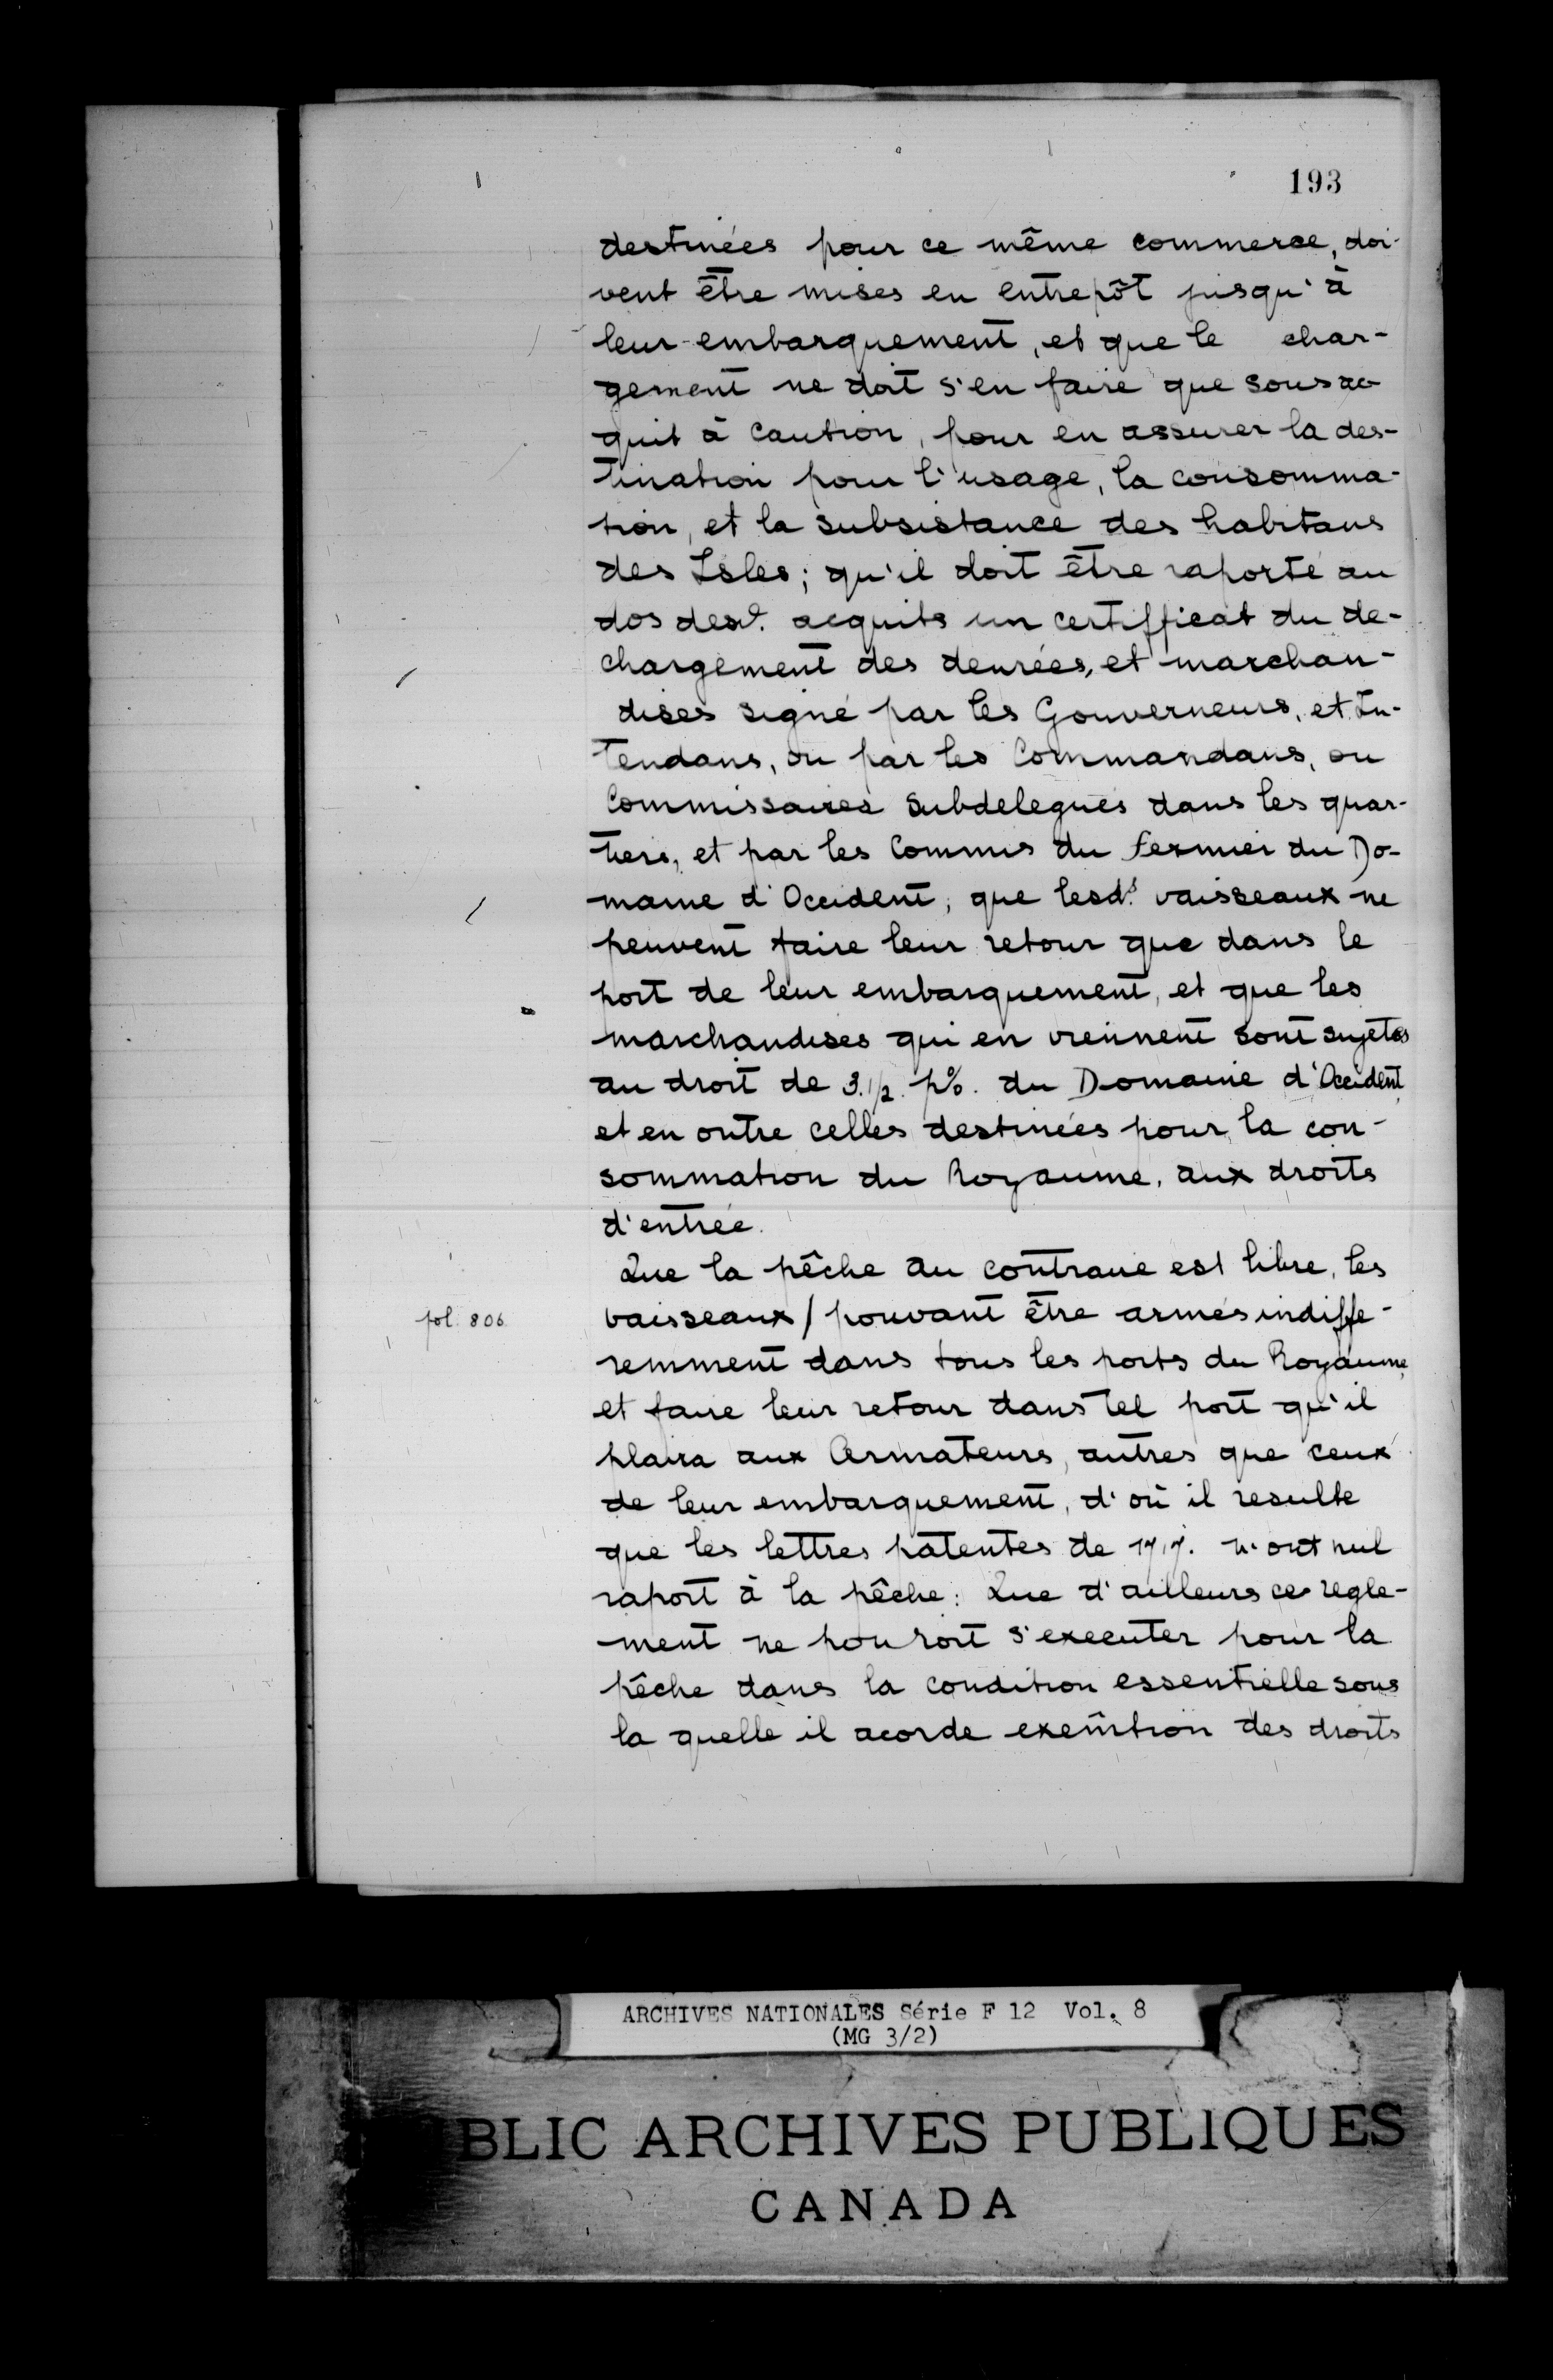 193
destinées pour ce même commerce, doi-
vent être mises en entrepôt jusqu'à
leur embarquement, et que le char-
gement ne doit s'en faire que sous ac-
quit à caution, pour en assurer la des-
tination pour l'usage, la consomma-
tion, et la subsistance des habitans
des Isles; qu'il doit être raporté au
dos desd. acquits un certifficat du de-
chargement des denrées, et marchan-
dises signé par les Gouverneurs, et In-
tendans, ou par les Commandans, ou
Commissaires Subdelegués dans les quar-
tiers, et par les Commis du fermier du Do-
maine d'Occident; que lesd.s vaisseaux ne
peuvent faire leur retour que dans le
port de leur embarquement, et que les
marchandises qui en viennent sont sujetes
au droit de 3.1/2. p%. du Domaine d'Occident,
et en outre celles destinées pour la con-
sommation du Royaume, aux droits
d'entrée.
Que la pêche au contraire est libre, les
fol. 806 vaisseaux / pouvant être armés indiffe-
remment dans tous les ports du Royaume,
et faire leur retour dans tel port qu'il
plaira aux Armateurs, autres que ceux
de leur embarquement, d'où il resulte
que les lettres patentes de 1717. n'ont nul
raport à la pêche: Que d'ailleurs ce regle-
ment ne pouroit s'executer pour la
pêche dans la condition essentielle sous
la quelle il acorde exemtion des droits
ARCHIVES NATIONALES Série F 12 Vol. 8
(MG 3/2)
BLIC ARCHIVES PUBLIQUES
CANADA